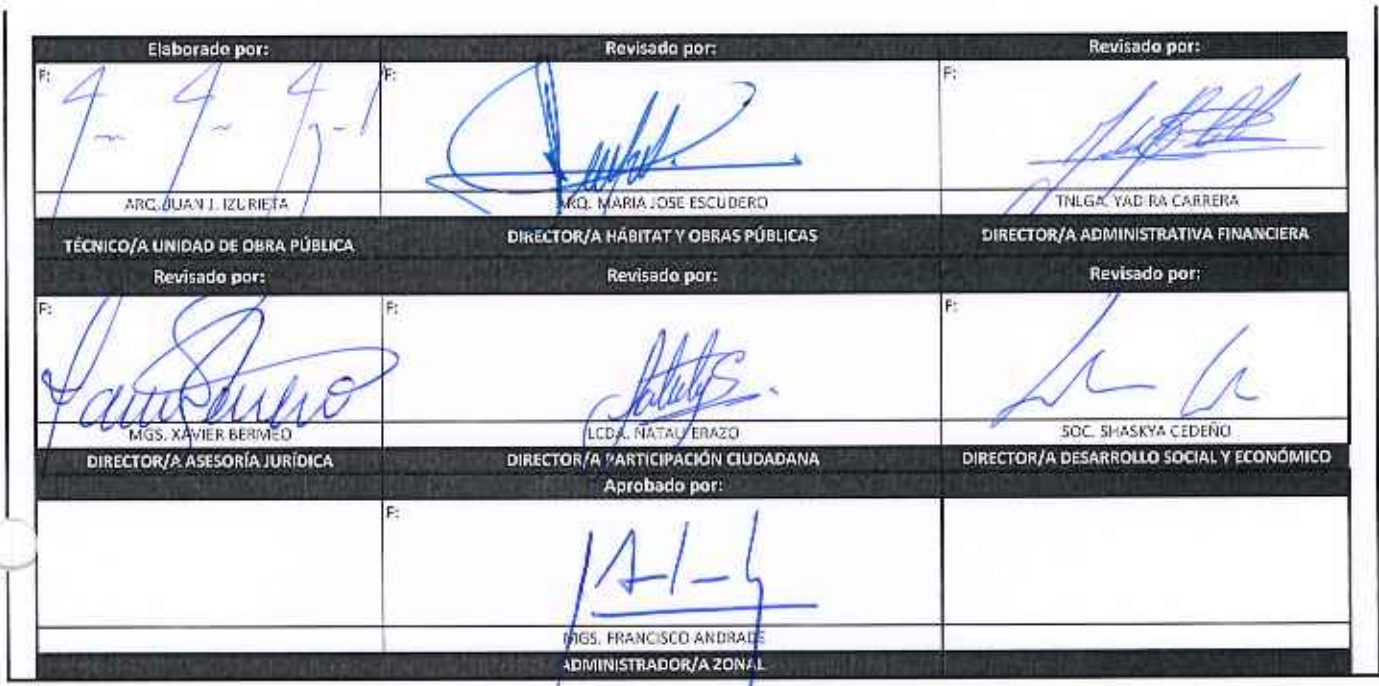 Elaborado por: Revisado por: Revisado por:
F: F: F:
ARQ. JUAN J. IZURIETA ARQ. MARIA JOSE ESCUDERO TNLGA. YADIRA CARRERA
TÉCNICO/A UNIDAD DE OBRA PÚBLICA DIRECTOR/A HÁBITAT Y OBRAS PÚBLICAS DIRECTOR/A ADMINISTRATIVA FINANCIERA
Revisado por: Revisado por: Revisado por:
F: F: F:
MGS. XAVIER BERMEO LCDA. NATALY ERAZO SOC. SHASKYA CEDEÑO
DIRECTOR/A ASESORÍA JURÍDICA DIRECTOR/A PARTICIPACIÓN CIUDADANA DIRECTOR/A DESARROLLO SOCIAL Y ECONÓMICO
Aprobado por:
F:
MGS. FRANCISCO ANDRADE
ADMINISTRADOR/A ZONAL